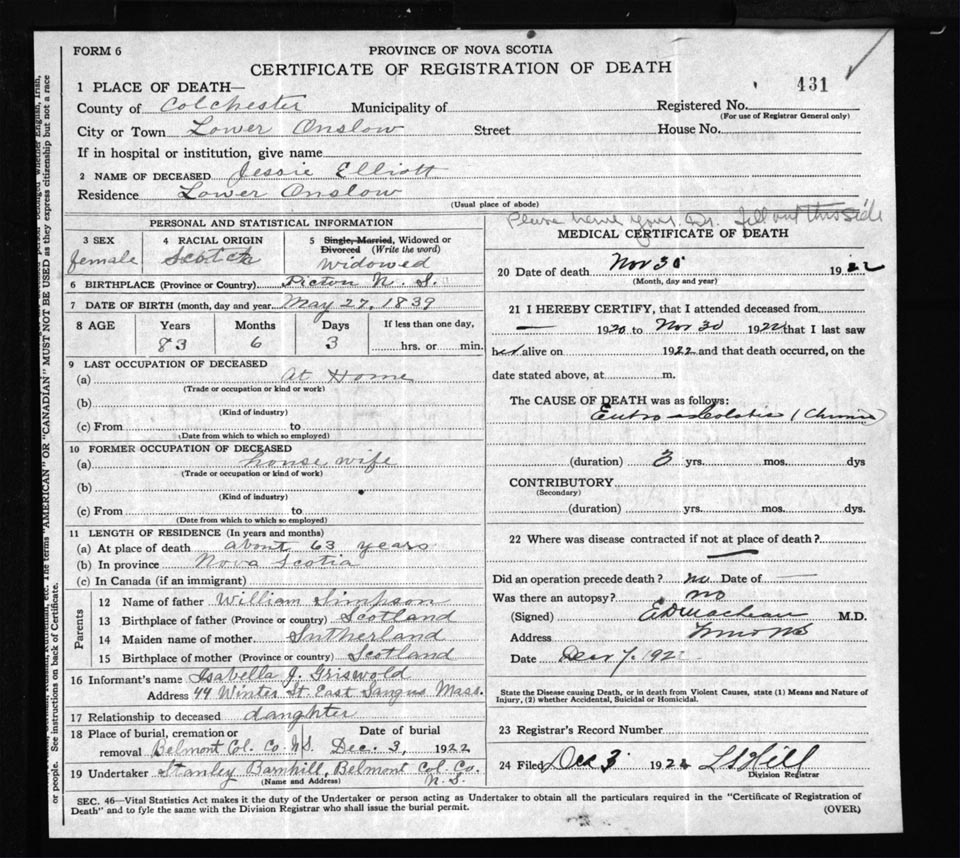 FORM 6
PROVINCE OF NOVA SCOTIA
CERTIFICATE OF REGISTRATION OF DEATH
431
1 PLACE OF DEATH—
County of Colchester Municipality of Registered No.
(For use of Registrar General only)
City or Town Lower Onslow Street House No.
If in hospital or institution, give name
2 NAME OF DECEASED Jessie Elliott
Residence Lower Onslow
(Usual place of abode)
PERSONAL AND STATISTICAL INFORMATION
3 SEX
female
4 RACIAL ORIGIN
Scotch
5 Single, Married, Widowed or
Divorced (Write the word)
Widowed
6 BIRTHPLACE (Province or Country) Pictou N. S.
7 DATE OF BIRTH (month, day and year May 27, 1839
8 AGE Years Months Days If less than one day,
83 6 3 hrs. or min.
9 LAST OCCUPATION OF DECEASED
(a) At Home
(Trade or occupation or kind or work)
(b)
(Kind of industry)
(c) From to
(Date from which to which so employed)
10 FORMER OCCUPATION OF DECEASED
(a) house wife
(Trade or occupation or kind of work)
(b)
(Kind of industry)
(c) From to
(Date from which to which so employed)
11 LENGTH OF RESIDENCE (In years and months)
(a) At place of death about 63 years
(b) In province Nova Scotia
(c) In Canada (if an immigrant)
Parents
12 Name of father William Simpson
13 Birthplace of father (Province or country) Scotland
14 Maiden name of mother Sutherland
15 Birthplace of mother (Province or country) Scotland
16 Informant's name Isabella J. Griswold
Address 44 Winter St. East Saugus Mass.
17 Relationship to deceased daughter
18 Place of burial, cremation or Date of burial
removal Belmont Col. Co. N.S. Dec. 3, 1922
19 Undertaker Stanley Barnhill, Belmont Col. Co.
(Name and Address) N. S.
Please have your Dr. fill out this side
MEDICAL CERTIFICATE OF DEATH
20 Date of death Nov 30 1922
(Month, day and year)
21 I HEREBY CERTIFY, that I attended deceased from
— 1920 to Nov 30 1922 that I last saw
her alive on 1922 and that death occurred, on the
date stated above, at m.
The CAUSE OF DEATH was as follows:
(Chronic)
(duration) 3 yrs. mos. dys
CONTRIBUTORY
(Secondary)
(duration) yrs. mos. dys.
22 Where was disease contracted if not at place of death?
Did an operation precede death? no Date of —
Was there an autopsy? no
(Signed) M.D.
Address
Date 7. 192
State the Disease causing Death, or in death from Violent Causes, state (1) Means and Nature of
Injury, (2) whether Accidental, Suicidal or Homicidal.
23 Registrar's Record Number
24 Filed Dec 3 192 Hill
Division Registrar
SEC. 46—Vital Statistics Act makes it the duty of the Undertaker or person acting as Undertaker to obtain all the particulars required in the "Certificate of Registration of
Death" and to fyle the same with the Division Registrar who shall issue the burial permit.
(OVER)
etc. The terms "AMERICAN" OR "CANADIAN" MUST NOT BE USED as they express citizenship but not a race
or people. See instructions on back of Certificate.